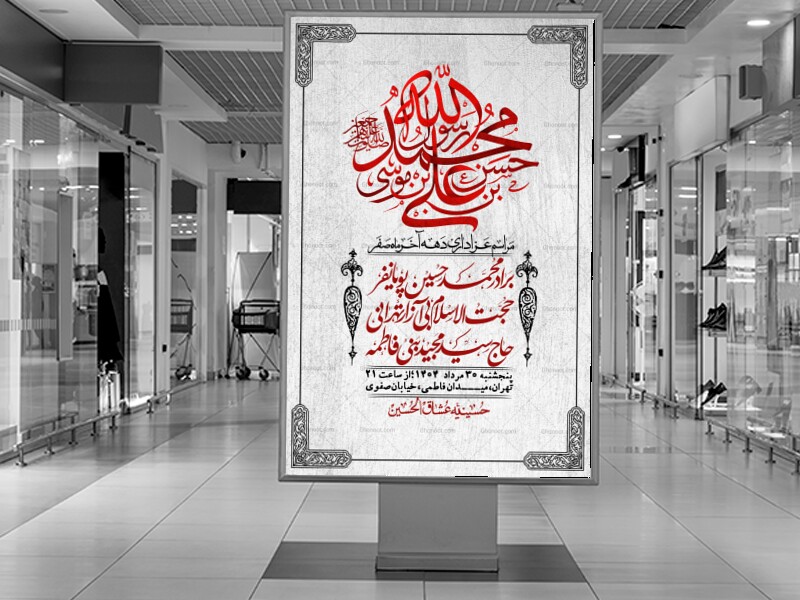 محمد رسول الله
حسن بن علی
بن موسی
مراسم عزاداری دهه آخر ماه صفر
برادر محمدحسین پویانفر
حجت الاسلام بی آزار تهرانی
حاج سید مجید بنی فاطمه
پنجشنبه ۳۰ مرداد ۱۴۰۴؛ از ساعت ۲۱
تهران، میدان فاطمی، خیابان صفوی
حسینیه عشاق الحسین